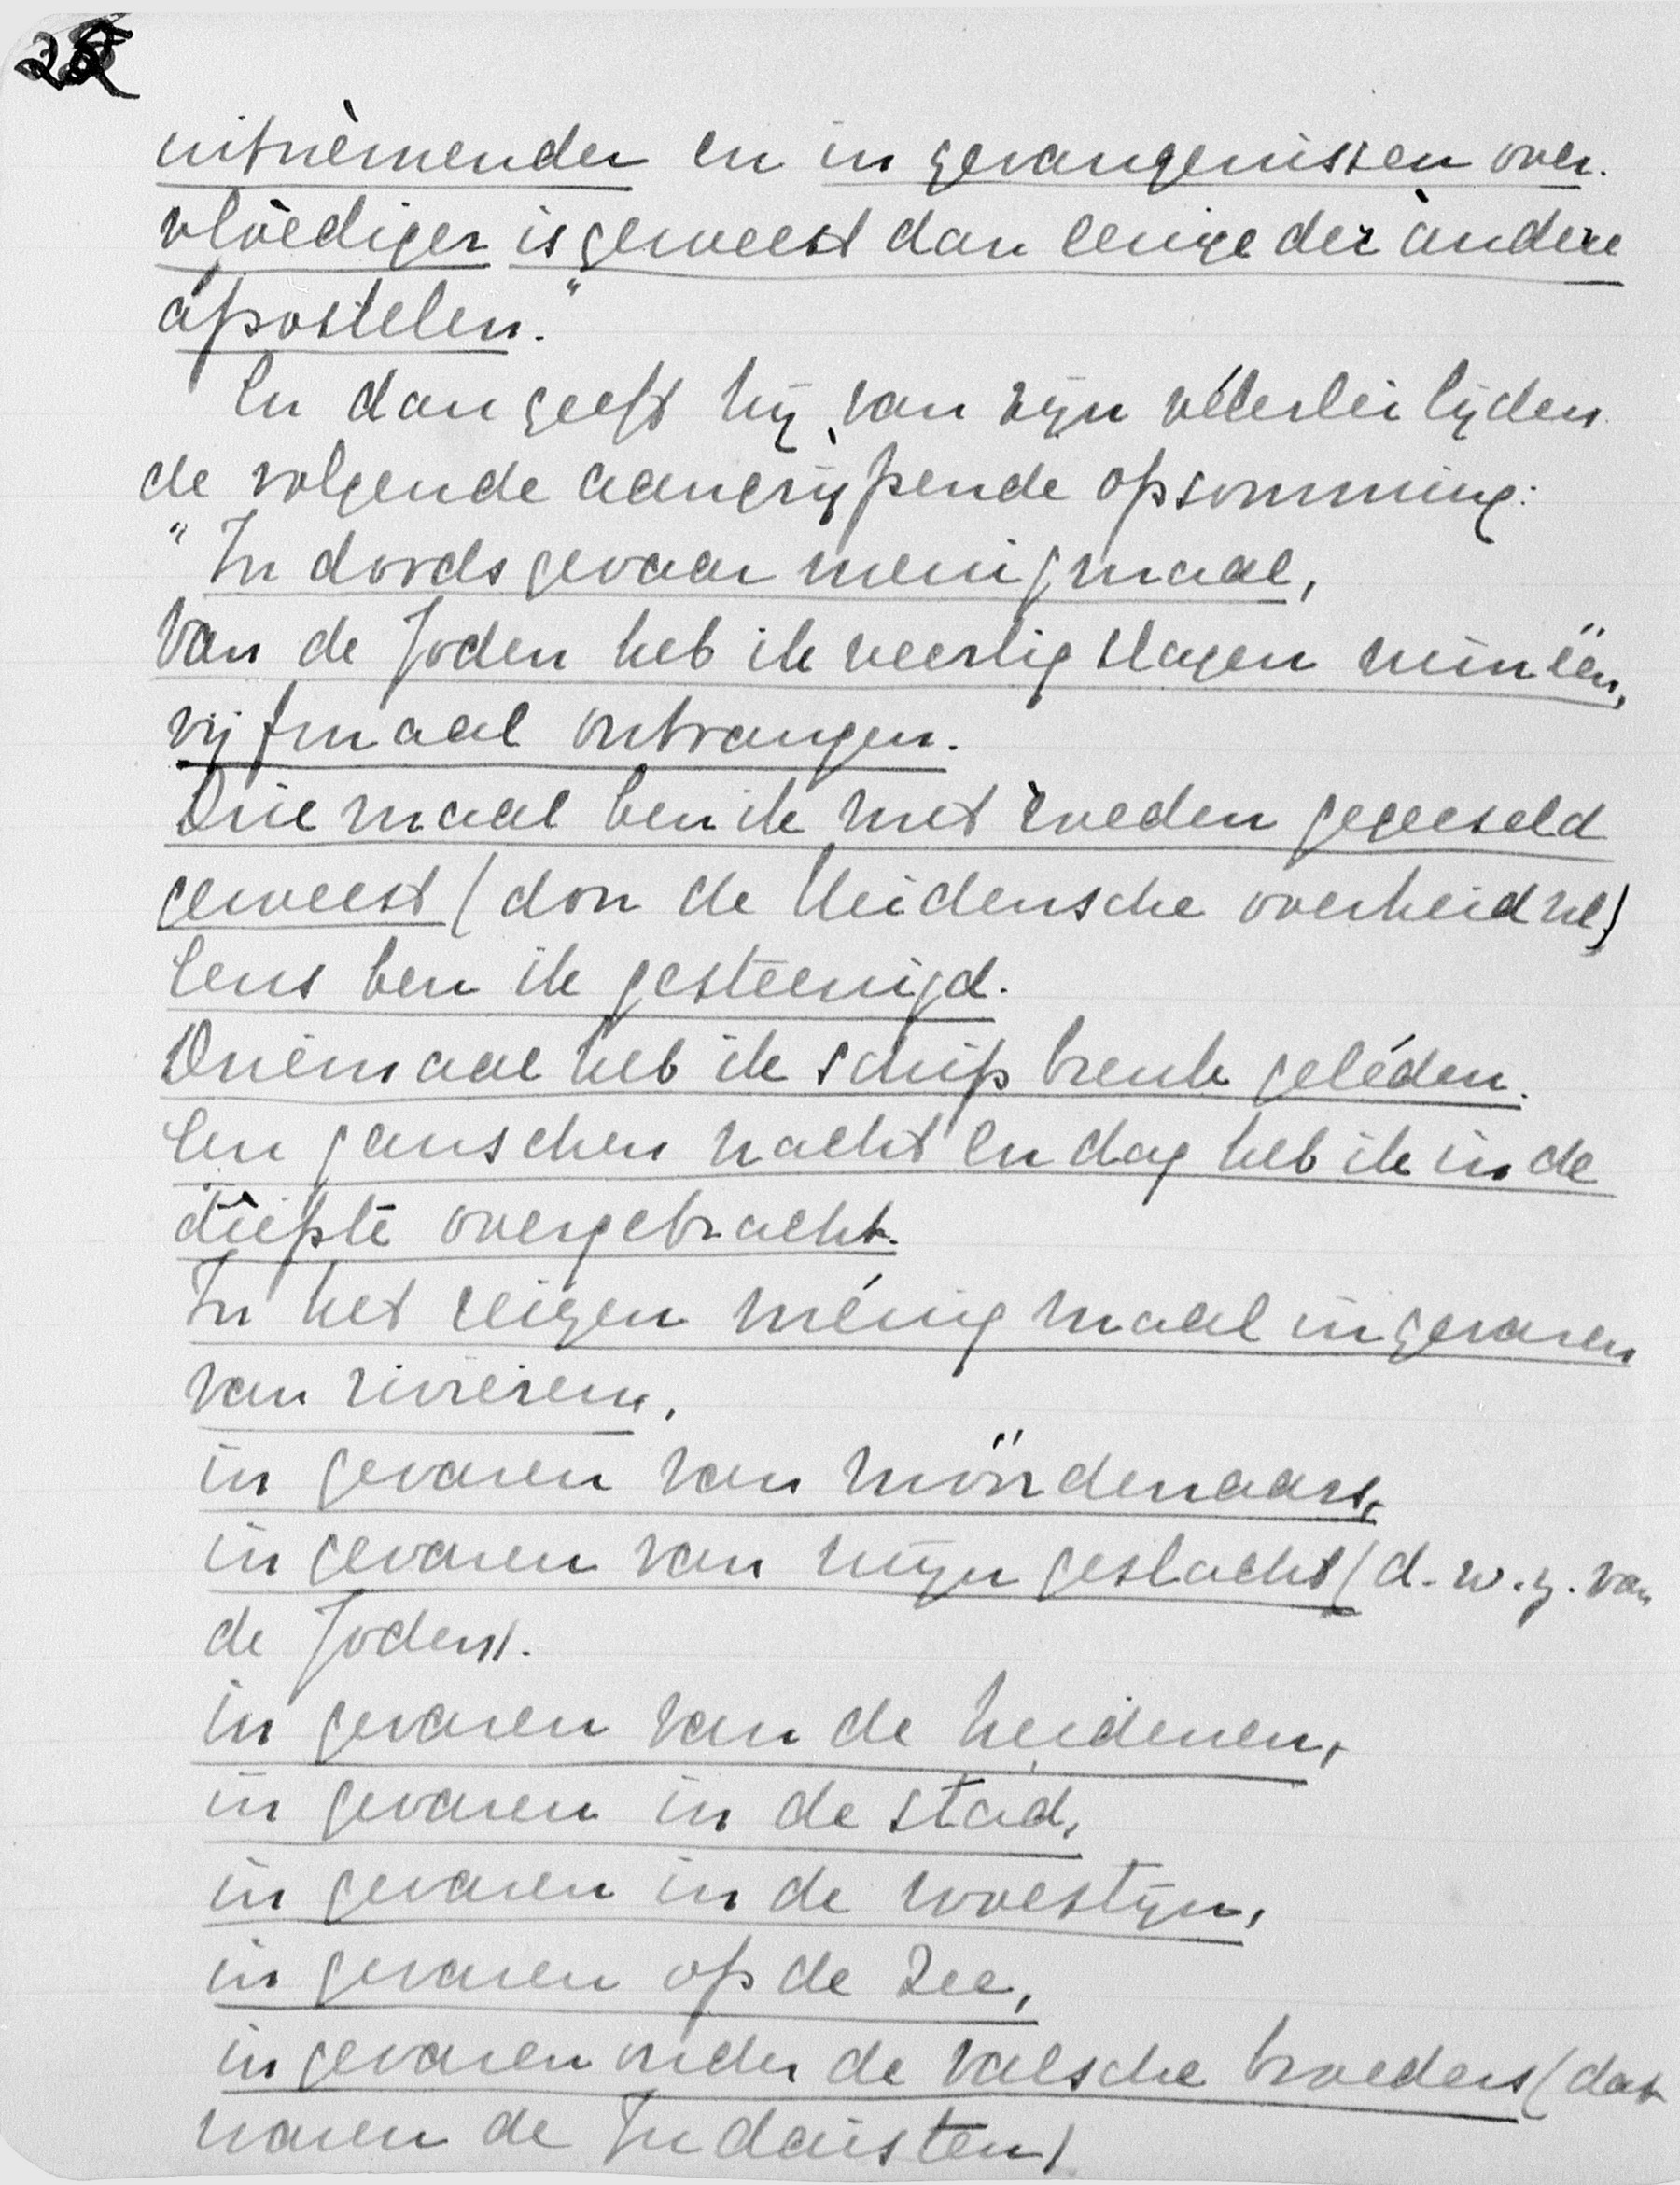 uitnèmender en in gevangenissen over-
vloediger is geweest dan eenige der àndere
apostelen."
En dan geeft hij van zijn vélerlei lijden
de volgende aangrijpende opsomming:
"In doodsgevaar menigmaal,
Van de Joden heb ik veertig slagen min één,
vijfmaal ontvangen.
Driemaal ben ik met roeden gegeeseld
geweest (door de Heidensche overheid nl)
Eens ben ik gesteenigd.
Driemaal heb ik schipbreuk geléden.
Een ganschen nacht en dag heb ik in de
diepte overgebracht.
In het reizen ménigmaal in gevaren
van rivieren,
in gevaren van moordenaars,
in gevaren van mijn geslacht (d.w.z. van
de Joden).
in gevaren van de heidenen,
in gevaren in de stad,
in gevaren in de woestijn,
in gevaren op de zee,
in gevaren onder de valsche broeders (dat
waren de Judaisten)